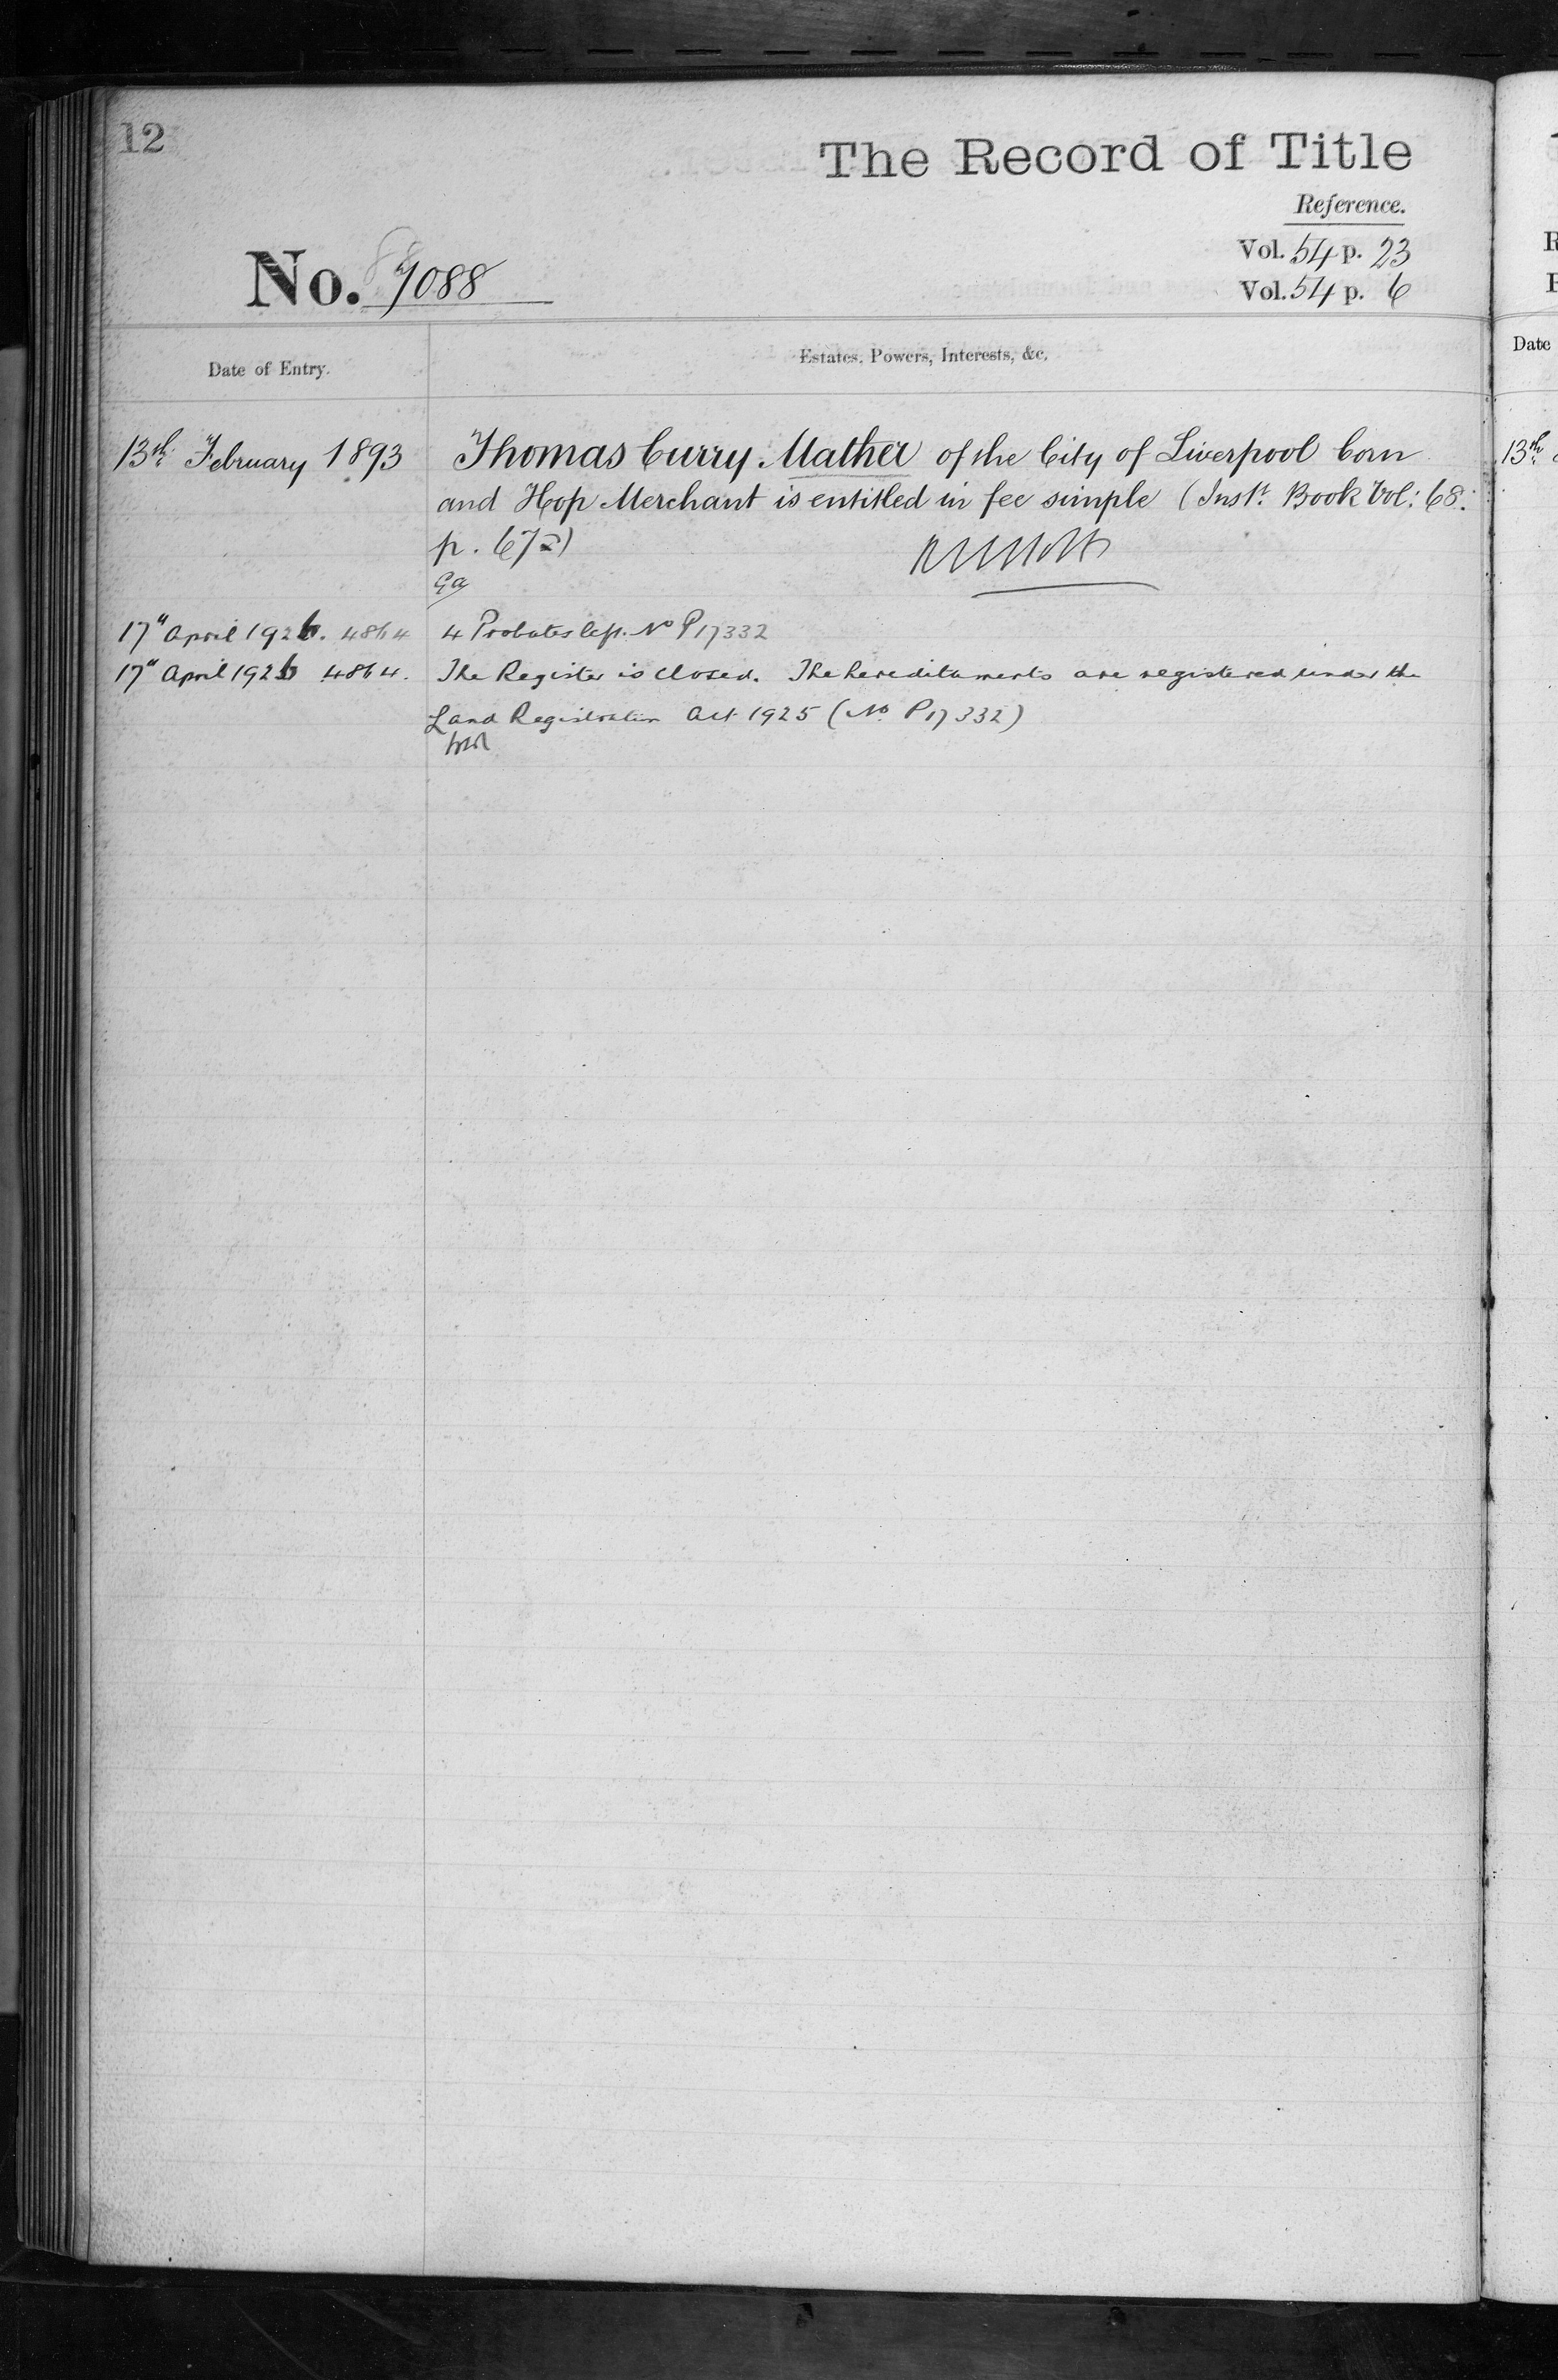 12
The Record of Title
Reference.
Vol. 54 p. 23
No. 7088
Vol. 54 p. 6
Date of Entry.
Estates, Powers, Interests, &c.
Date
13th February 1893 Thomas Curry Mather of the City of Liverpool Corn
and Hop Merchant is entitled in fee simple (Inst. Book Vol: 68.
p. 672)
13th
17" April 1926. 4864 4 Probates No P17332
17" April 1926 4864. The Register is closed. The hereditaments are registered under the
Land Registration Act 1925 (No. P17332)